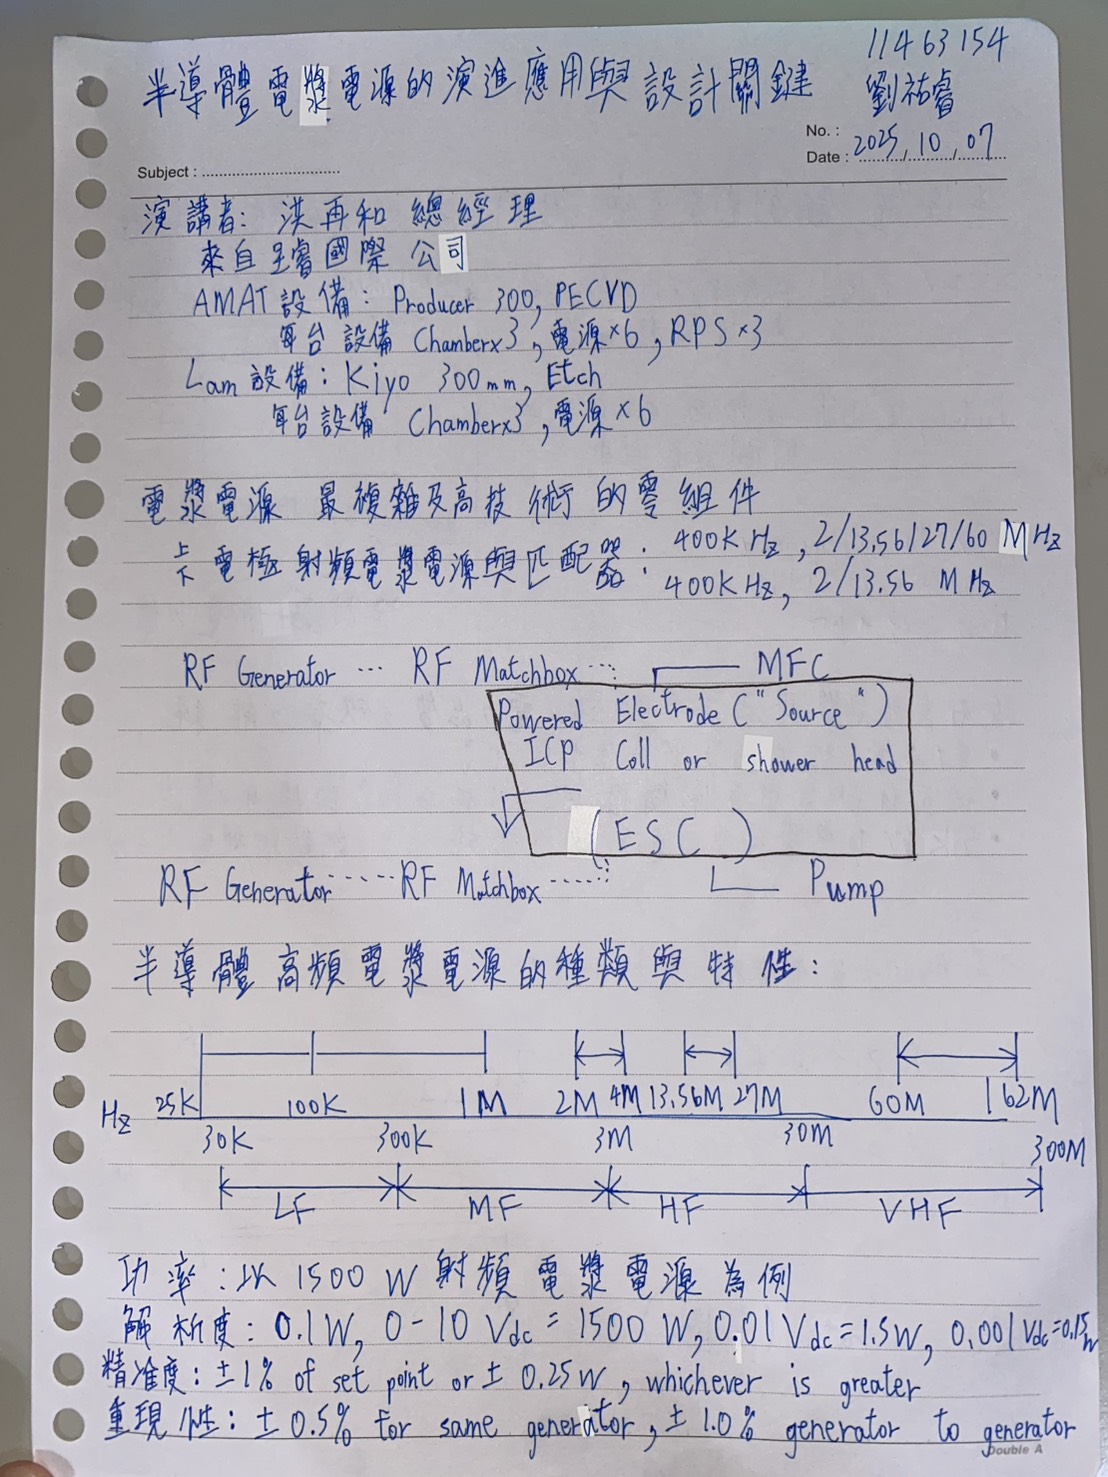 11463154
半導體電漿電源的演進應用與設計關鍵
劉祐睿
No. :
Date : 2025, 10, 07
Subject :
演講者: 洪再和 總經理
來自呈睿國際公司
AMAT設備: Producer 300, PECVD
每台設備 Chamber×3, 電源×6, RPS×3
Lam設備: Kiyo 300mm, Etch
每台設備 Chamber×3, 電源×6
電漿電源 最複雜及高技術的零組件
上下電極射頻電漿電源與匹配器: 400KHz, 2/13.56/27/60 MHz
400KHz, 2/13.56 MHz
RF Generator ... RF Matchbox ... MFC
Powered Electrode ("Source")
ICP Coll or shower head
(ESC)
RF Generator ..... RF Matchbox ..... Pump
半導體高頻電漿電源的種類與特性:
Hz 25K 100K 1M 2M 4M 13.56M 27M 60M 162M
30K 300K 3M 30M 300M
LF MF HF VHF
功率: 以1500W射頻電漿電源為例
解析度: 0.1W, 0-10 Vdc = 1500 W, 0.01 Vdc = 1.5W, 0.001 Vdc = 0.15W
精准度: ±1% of set point or ± 0.25W, whichever is greater
重現性: ± 0.5% for same generator, ± 1.0% generator to generator
Double A